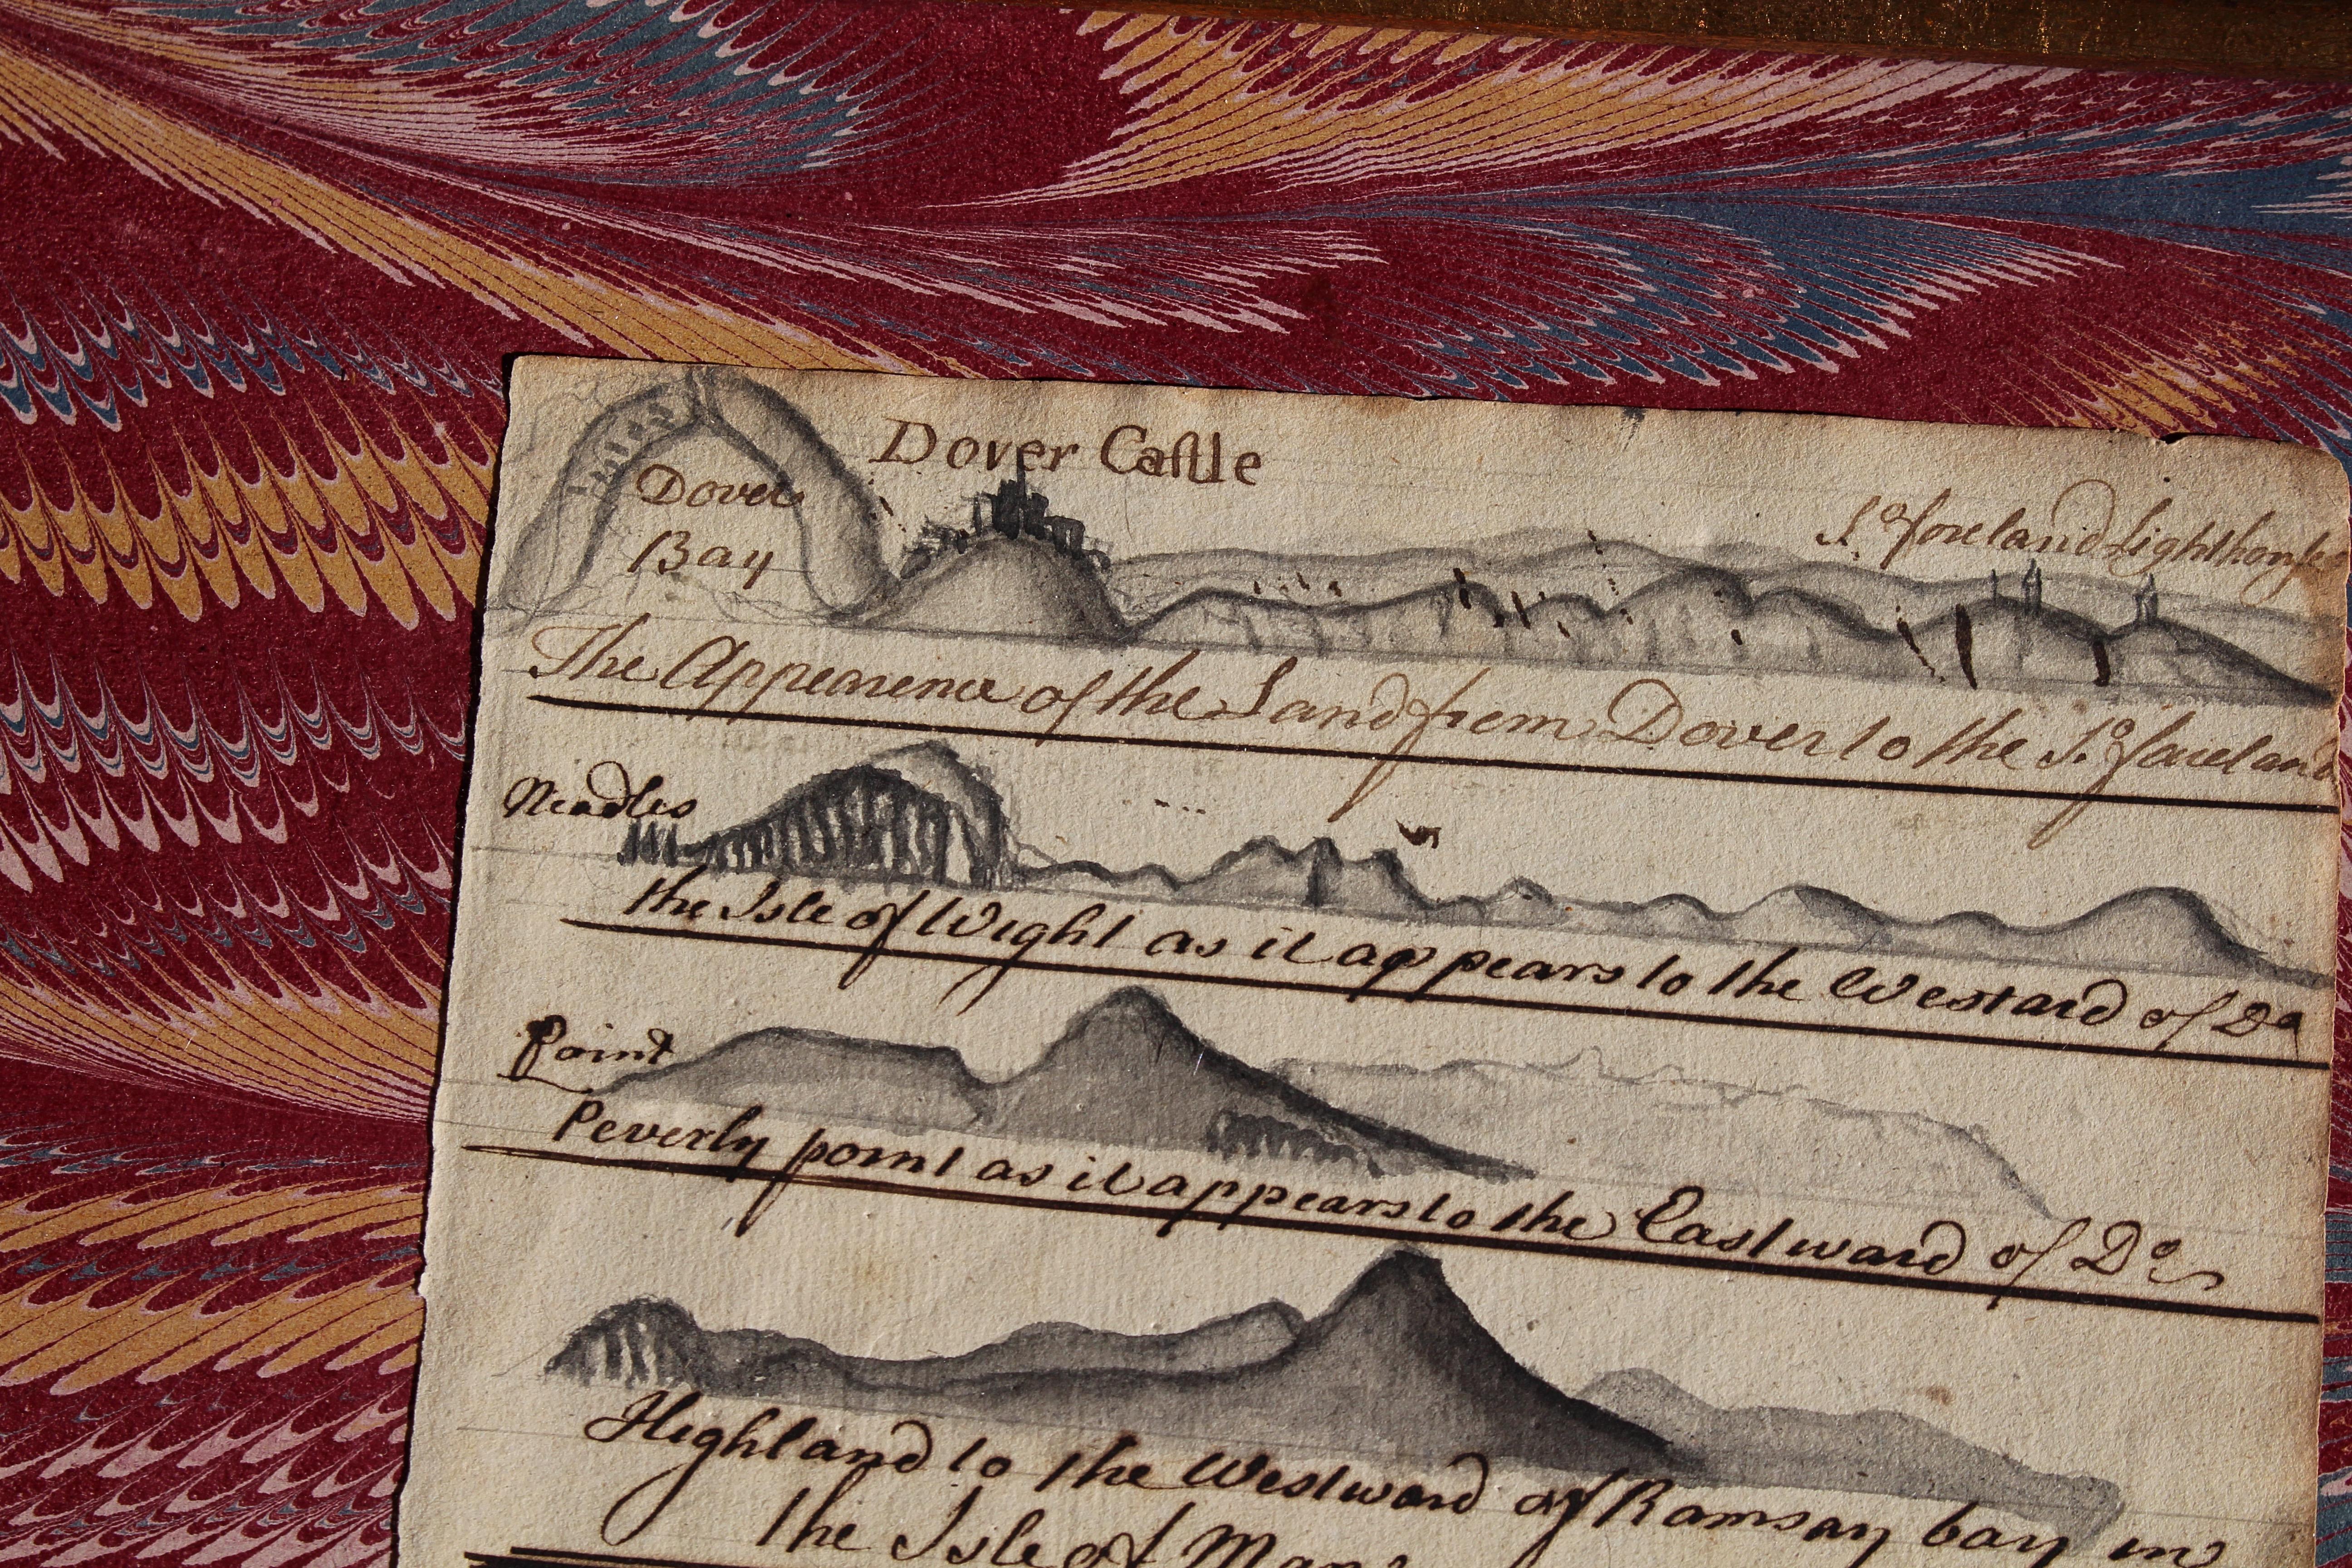 Dover Caſtle
Dover
Bay
So. foreland Lighthouſes
The Appearence of the Land from Dover to the So. foreland
Needles
the Isle of Wight as it appears to the Westard of Do
Point
Peverly point as it appears to the Eastward of Do
Highland to the Westward of Ramsay bay in
the Isle of Man